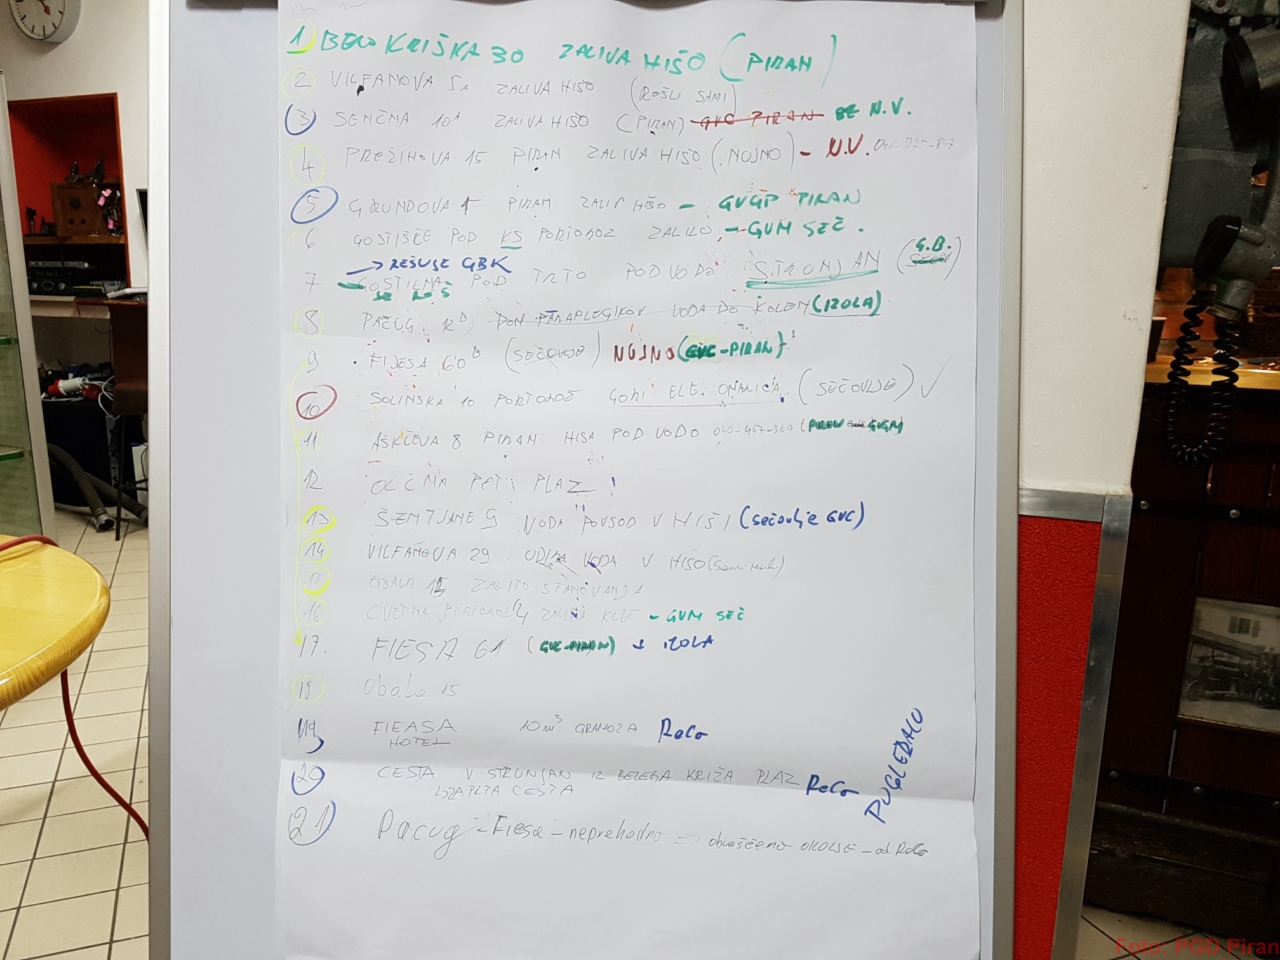 1 BELOKRIŠKA 30 ZALIVA HIŠO (PIRAN)
2 VILFANOVA 5A ZALIVA HIŠO (REŠILI SAMI)
3 SENČNA 101 ZALIVA HIŠO (PIRAN) GVC PIRAN BE N.V.
4 PREŽIHOVA 15 PIRAN ZALIVA HIŠO (NUJNO) - N.V.
5 GRUNDOVA PIRAN HIŠO - GVGP PIRAN
6 GOSTIŠČE POD KS PORTOROŽ ZALILO - GUM SEČ.
→ REŠUJE GBK
7 GOSTILNA POD TRTO POD VODO STRUNJAN (G.B.)
8 PACUG DOM PARAPLEGIKOV VODA DO KOLEN (IZOLA)
9 FIJESA 60 (SEČOVLJE) NUJNO (GVC-PIRAN)
10 SOLINSKA 10 PORTOROŽ GORI ELE. OMARICA (SEČOVLJE) ✓
11 AŠKČEVA 8 PIRAN HIŠA POD VODO
12 PLAZ !
13 ŠENTJANE VODA POVSOD V HIŠI (Sečovlje GVC)
14 VILFANOVA 29 UDIRA VODA V HIŠO
15 OBALA ZALITO STANOVANJE
16 CVETNA PORTOROŽ ZALIVA KLET - GVM SEČ
17. FIESA 61 (GVC-PIRAN) IZOLA
18 Obala 15
19 FIEASA 10 m³ GRAMOZA ReCo
HOTEL
20 CESTA V STRUNJAN IZ BELEGA KRIŽA PLAZ ReCo
ZAPRTA CESTA
POGLEDALI
21) Pacug - Fiesa - neprehodno => obveščeno OKOLJE - od ReCo
Foto: PGD Piran